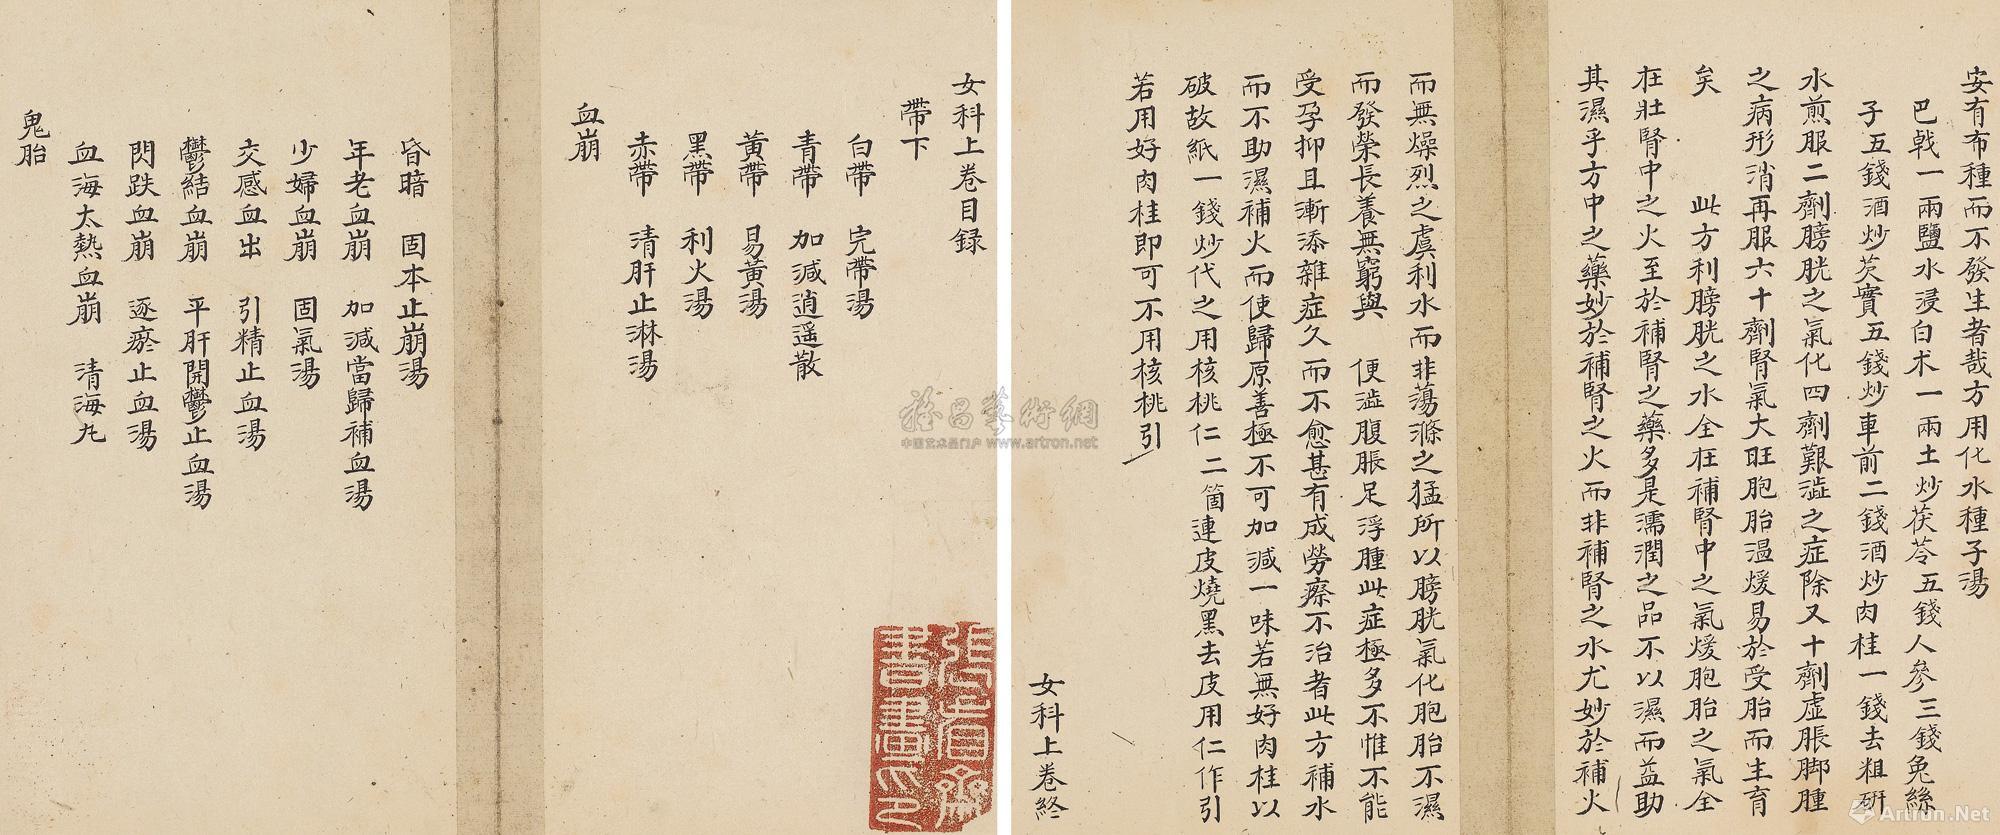 女科上卷目録
帶下
白帶 完帶湯
青帶 加減逍遥散
黃帶 易黃湯
黑帶 利火湯
赤帶 清肝止淋湯
血崩
昏暗 固本止崩湯
年老血崩 加減當歸補血湯
少婦血崩 固氣湯
交感血出 引精止血湯
鬱結血崩 平肝開鬱止血湯
閃跌血崩 逐瘀止血湯
血海太熱血崩 清海丸
鬼胎
安有布種而不發生者哉方用化水種子湯
巴戟一兩鹽水浸白术一兩土炒茯苓五錢人參三錢兔絲
子五錢酒炒芡實五錢炒車前二錢酒炒肉桂一錢去粗研
水煎服二劑膀胱之氣化四劑艱澁之症除又十劑虛脹脚腫
之病形消再服六十劑腎氣大旺胞胎温煖易於受胎而生育
矣 此方利膀胱之水全在補腎中之氣煖胞胎之氣全
在壯腎中之火至於補腎之藥多是濡潤之品不以濕而益助
其濕乎方中之藥妙於補腎之火而非補腎之水尤妙於補火
而無燥烈之虞利水而非蕩滌之猛所以膀胱氣化胞胎不濕
而發榮長養無窮與 便澁腹脹足浮腫此症極多不惟不能
受孕抑且漸添雜症久而不愈甚有成勞瘵不治者此方補水
而不助濕補火而使歸原善極不可加減一味若無好肉桂以
破故紙一錢炒代之用核桃仁二箇連皮燒黑去皮用仁作引
若用好肉桂即可不用核桃引
女科上卷終
書畫印
雅昌藝術網
中国艺术品门户 www.artron.net
Artron.Net